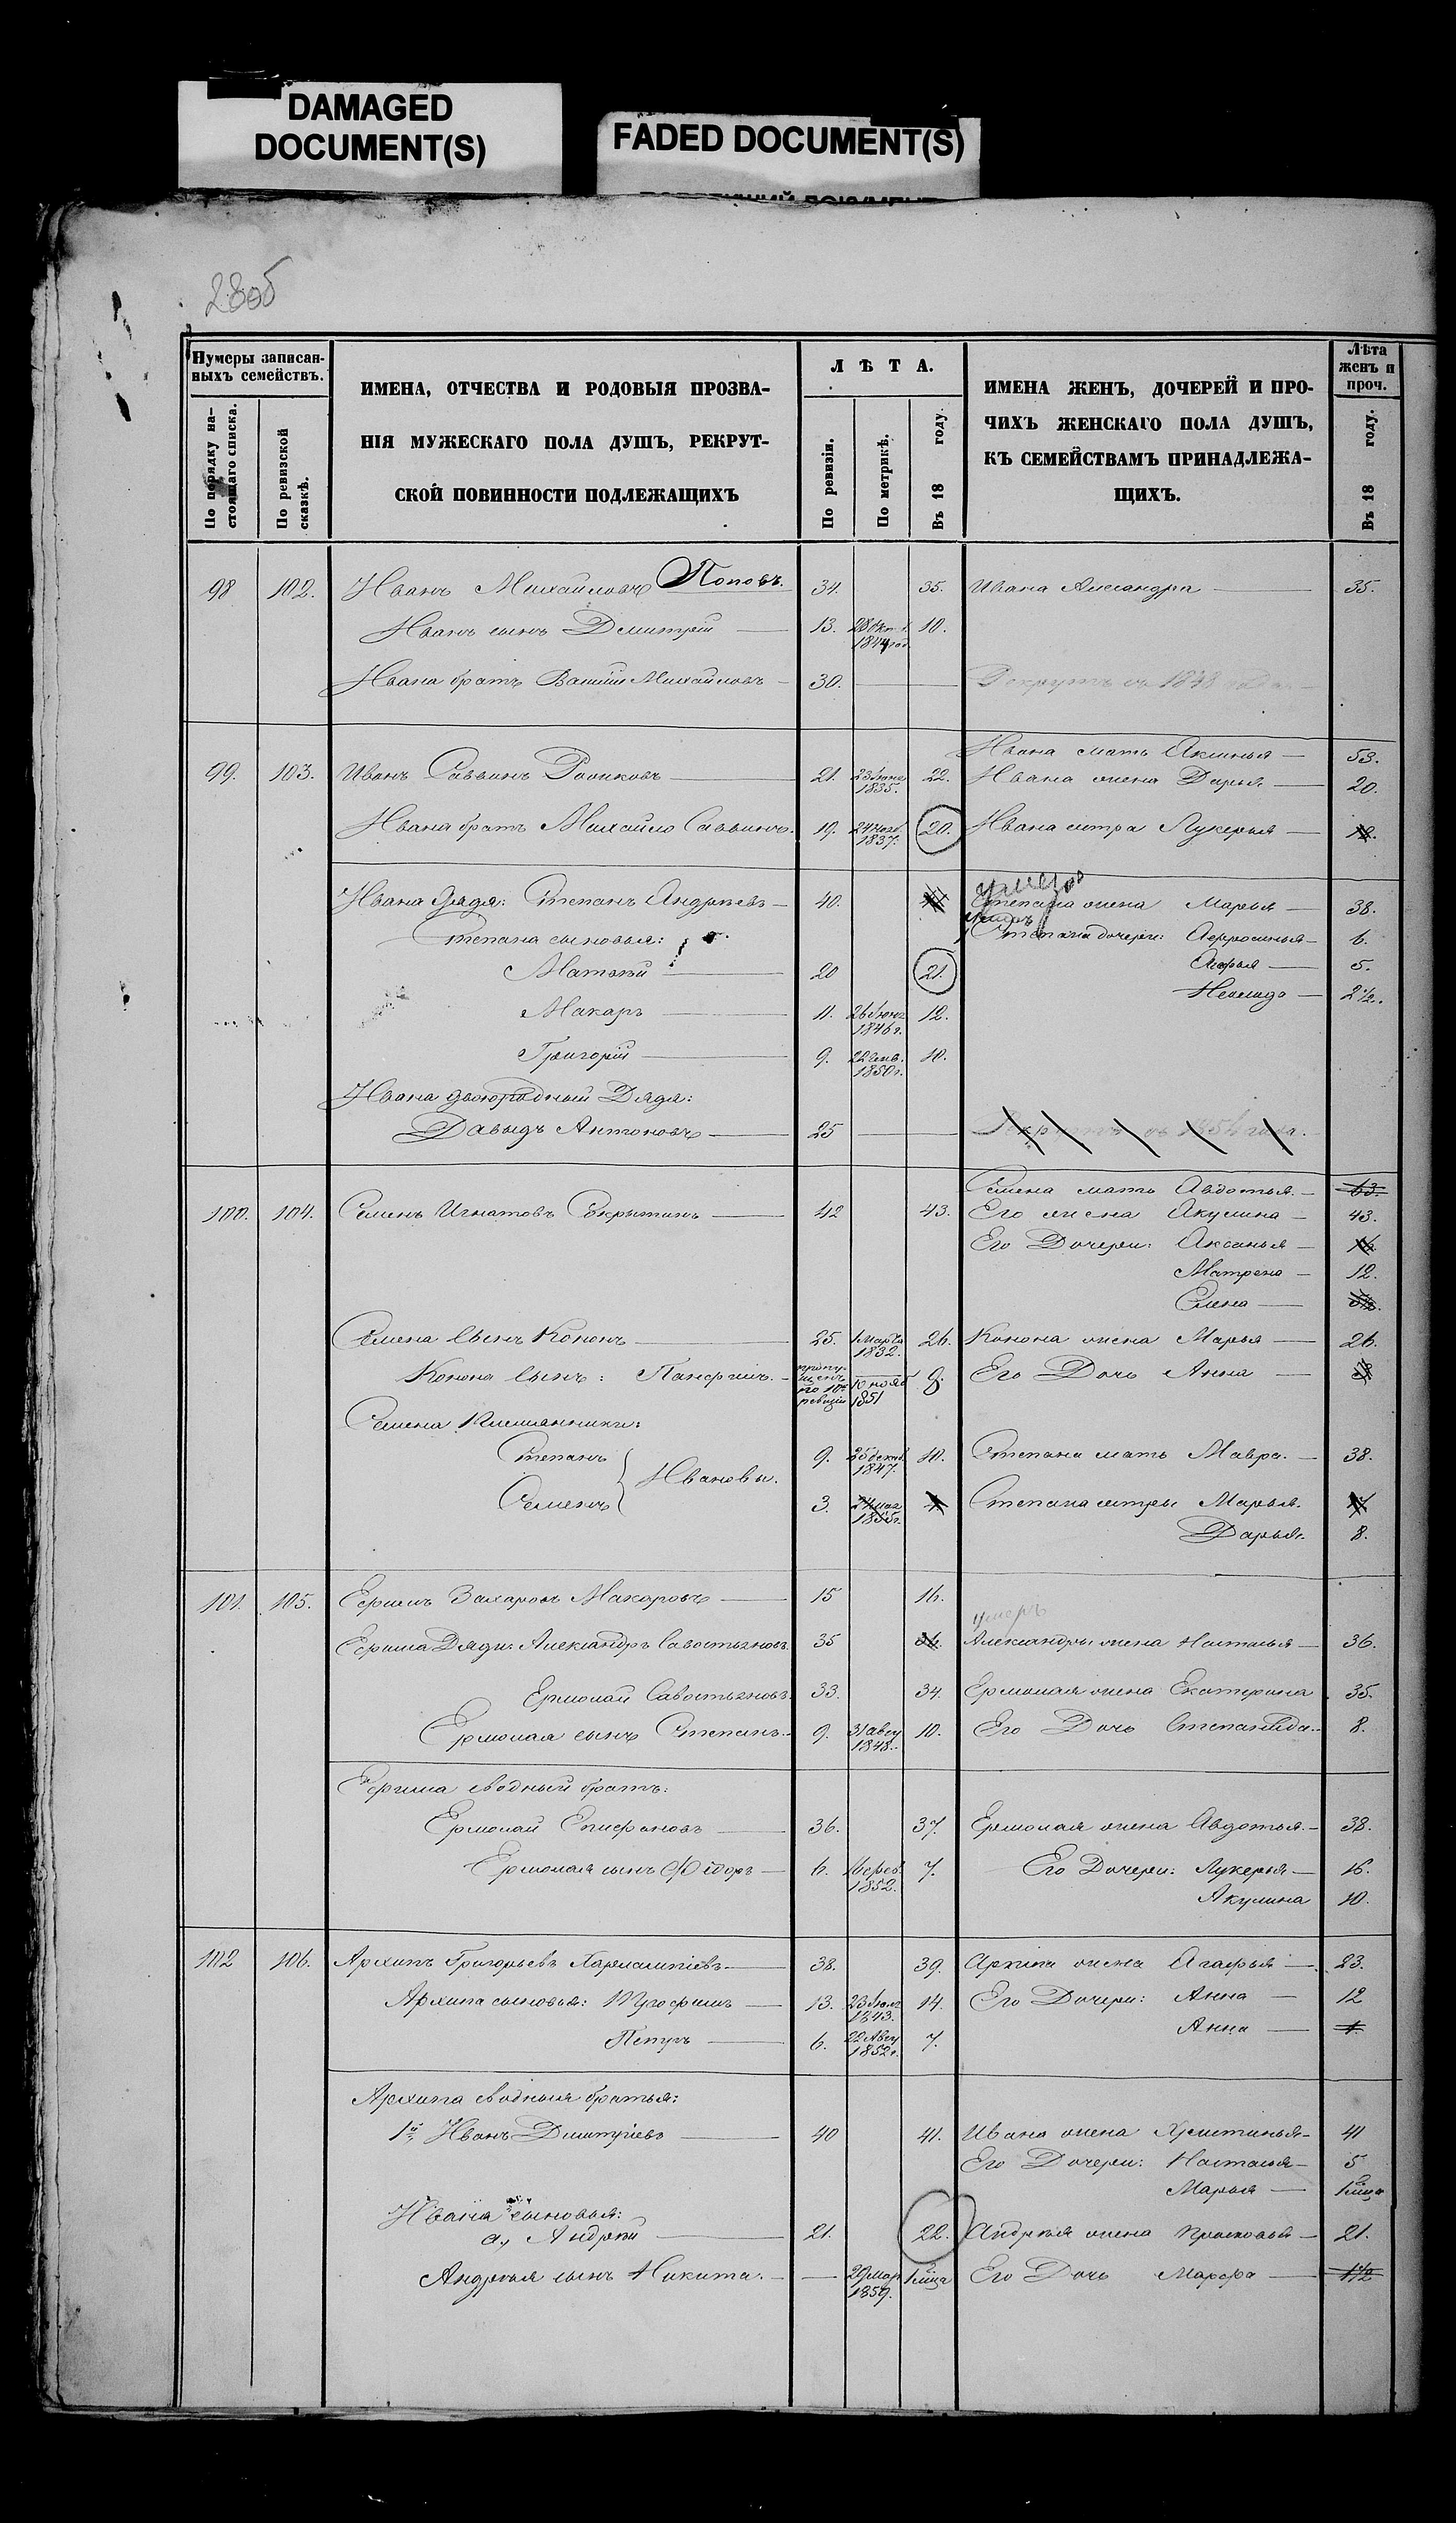 DAMAGED
DOCUMENT(S)
FADED DOCUMENT(S)
280б
Нумеры записан-
ныхъ семействъ.
По порядку на-
стоящаго списка.
По ревизской
сказкѣ.
ИМЕНА, ОТЧЕСТВА И РОДОВЫЯ ПРОЗВА-
НІЯ МУЖЕСКАГО ПОЛА ДУШЪ, РЕКРУТ-
СКОЙ ПОВИННОСТИ ПОДЛЕЖАЩИХЪ
ЛѢТА.
По ревизіи.
По метрикѣ.
Въ 18 году.
ИМЕНА ЖЕНЪ, ДОЧЕРЕЙ И ПРО-
ЧИХЪ ЖЕНСКАГО ПОЛА ДУШЪ,
КЪ СЕМЕЙСТВАМЪ ПРИНАДЛЕЖА-
ЩИХЪ.
Лѣта
женъ и
проч.
Въ 18 году.
98 102. Иванъ Михайловъ Поповъ. 34. 35. Ивана 35.
Иванъ сынъ Дмитрій 13. 28 Окт. 1844 год. 10.
Ивана братъ Михайловъ 30. Рекрутъ въ 1848
Ивана мать Аксинья 53.
99. 103. Иванъ Саввинъ 21. 23 Іюня 1835. 22. Ивана жена Дарья 20.
Ивана братъ Михайло Саввинъ. 19. 1837. 20. Ивана сестра Лукерья
умеръ
Ивана дядя: Степанъ Андреевъ 40. Степана жена Марья 38.
Степана сыновья: Степана дочери: Афросинья 6.
Матвѣй 20 21. 5.
2½.
Макаръ 11. 1846 г. 12.
Григорій 9. 22 янв. 1850 г. 10.
Ивана двоюродный Дядя:
Давыдъ Антоновъ 25 Рекрутъ въ 1854 года.
Семена мать Авдотья. 63.
100. 104. Семенъ Игнатовъ 42 43. Его жена Акулина 43.
Его Дочери: Аксинья 16
Матрена 12.
Елена
Семена Сынъ Кононъ 25. 1 Марта 1832. 26. Конона жена Марья 26.
Конона Сынъ: Панфилъ. пропу-
щенъ
по 10й
ревизіи 10 нояб 1851 8. Его Дочь Анна
Семена Племянники:
Степанъ 9. 25 декаб. 1847. 10. Степана мать Мавра. 38.
Ивановы.
Семенъ 3. 24 мая 1855 г. Степана сестры Марья.
Дарья. 8.
101. 105. Ефимъ Захаровъ Макаровъ 15 16.
умеръ
Ефима Дяди: Александръ Савостьяновъ 35 36. Александры жена Настасья 36.
Ермолай Савостьяновъ. 33. 34. Ермолая жена Екатерина 35.
Ермолая сынъ Степанъ. 9. 31 авгу 1848. 10. Его Дочь Степанида. 8.
Ефима сводный братъ:
Ермолай Епифановъ 36. 37. Ермолая жена Авдотья. 38.
Ермолая сынъ Ѳедоръ 6. 16 фев. 1852. 7. Его Дочери: Лукерья 16.
Акулина 10.
102 106. Архипъ Григорьевъ Харлампіевъ 38. 39. Архипа жена Агафья 23.
Архипа сыновья: Трофимъ 13. 23 Іюля 1843. 14. Его Дочери: Анна 12
Петръ 6. 22 Авгу 1852 г. 7. Анна 1.
Архипа сводныя братья:
1й Иванъ Дмитріевъ 40 41. Ивана жена Христинья 41
Его Дочери: Настасья 5
Марья
Ивана сыновья:
а., Андрей 21. 22. Андрея жена Прасковья 21.
Андрея сынъ Никита. 29 Мар 1859. Его Дочь Марфа 1½